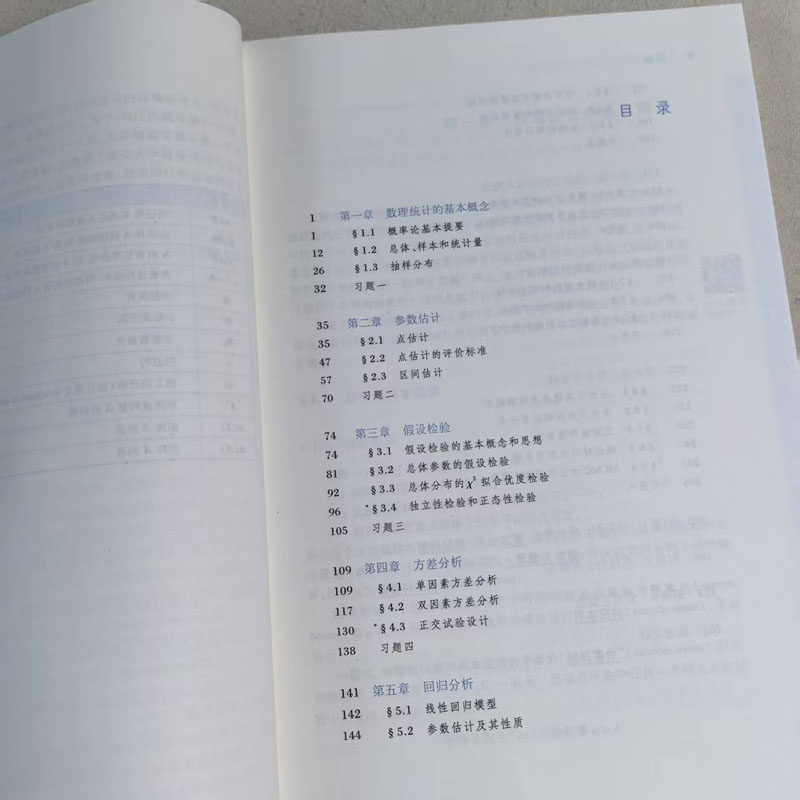 目 录
1 第一章 数理统计的基本概念
1 §1.1 概率论基本提要
12 §1.2 总体、样本和统计量
26 §1.3 抽样分布
32 习题一
35 第二章 参数估计
35 §2.1 点估计
47 §2.2 点估计的评价标准
57 §2.3 区间估计
70 习题二
74 第三章 假设检验
74 §3.1 假设检验的基本概念和思想
81 §3.2 总体参数的假设检验
92 §3.3 总体分布的χ² 拟合优度检验
96 *§3.4 独立性检验和正态性检验
105 习题三
109 第四章 方差分析
109 §4.1 单因素方差分析
117 §4.2 双因素方差分析
130 *§4.3 正交试验设计
138 习题四
141 第五章 回归分析
142 §5.1 线性回归模型
144 §5.2 参数估计及其性质